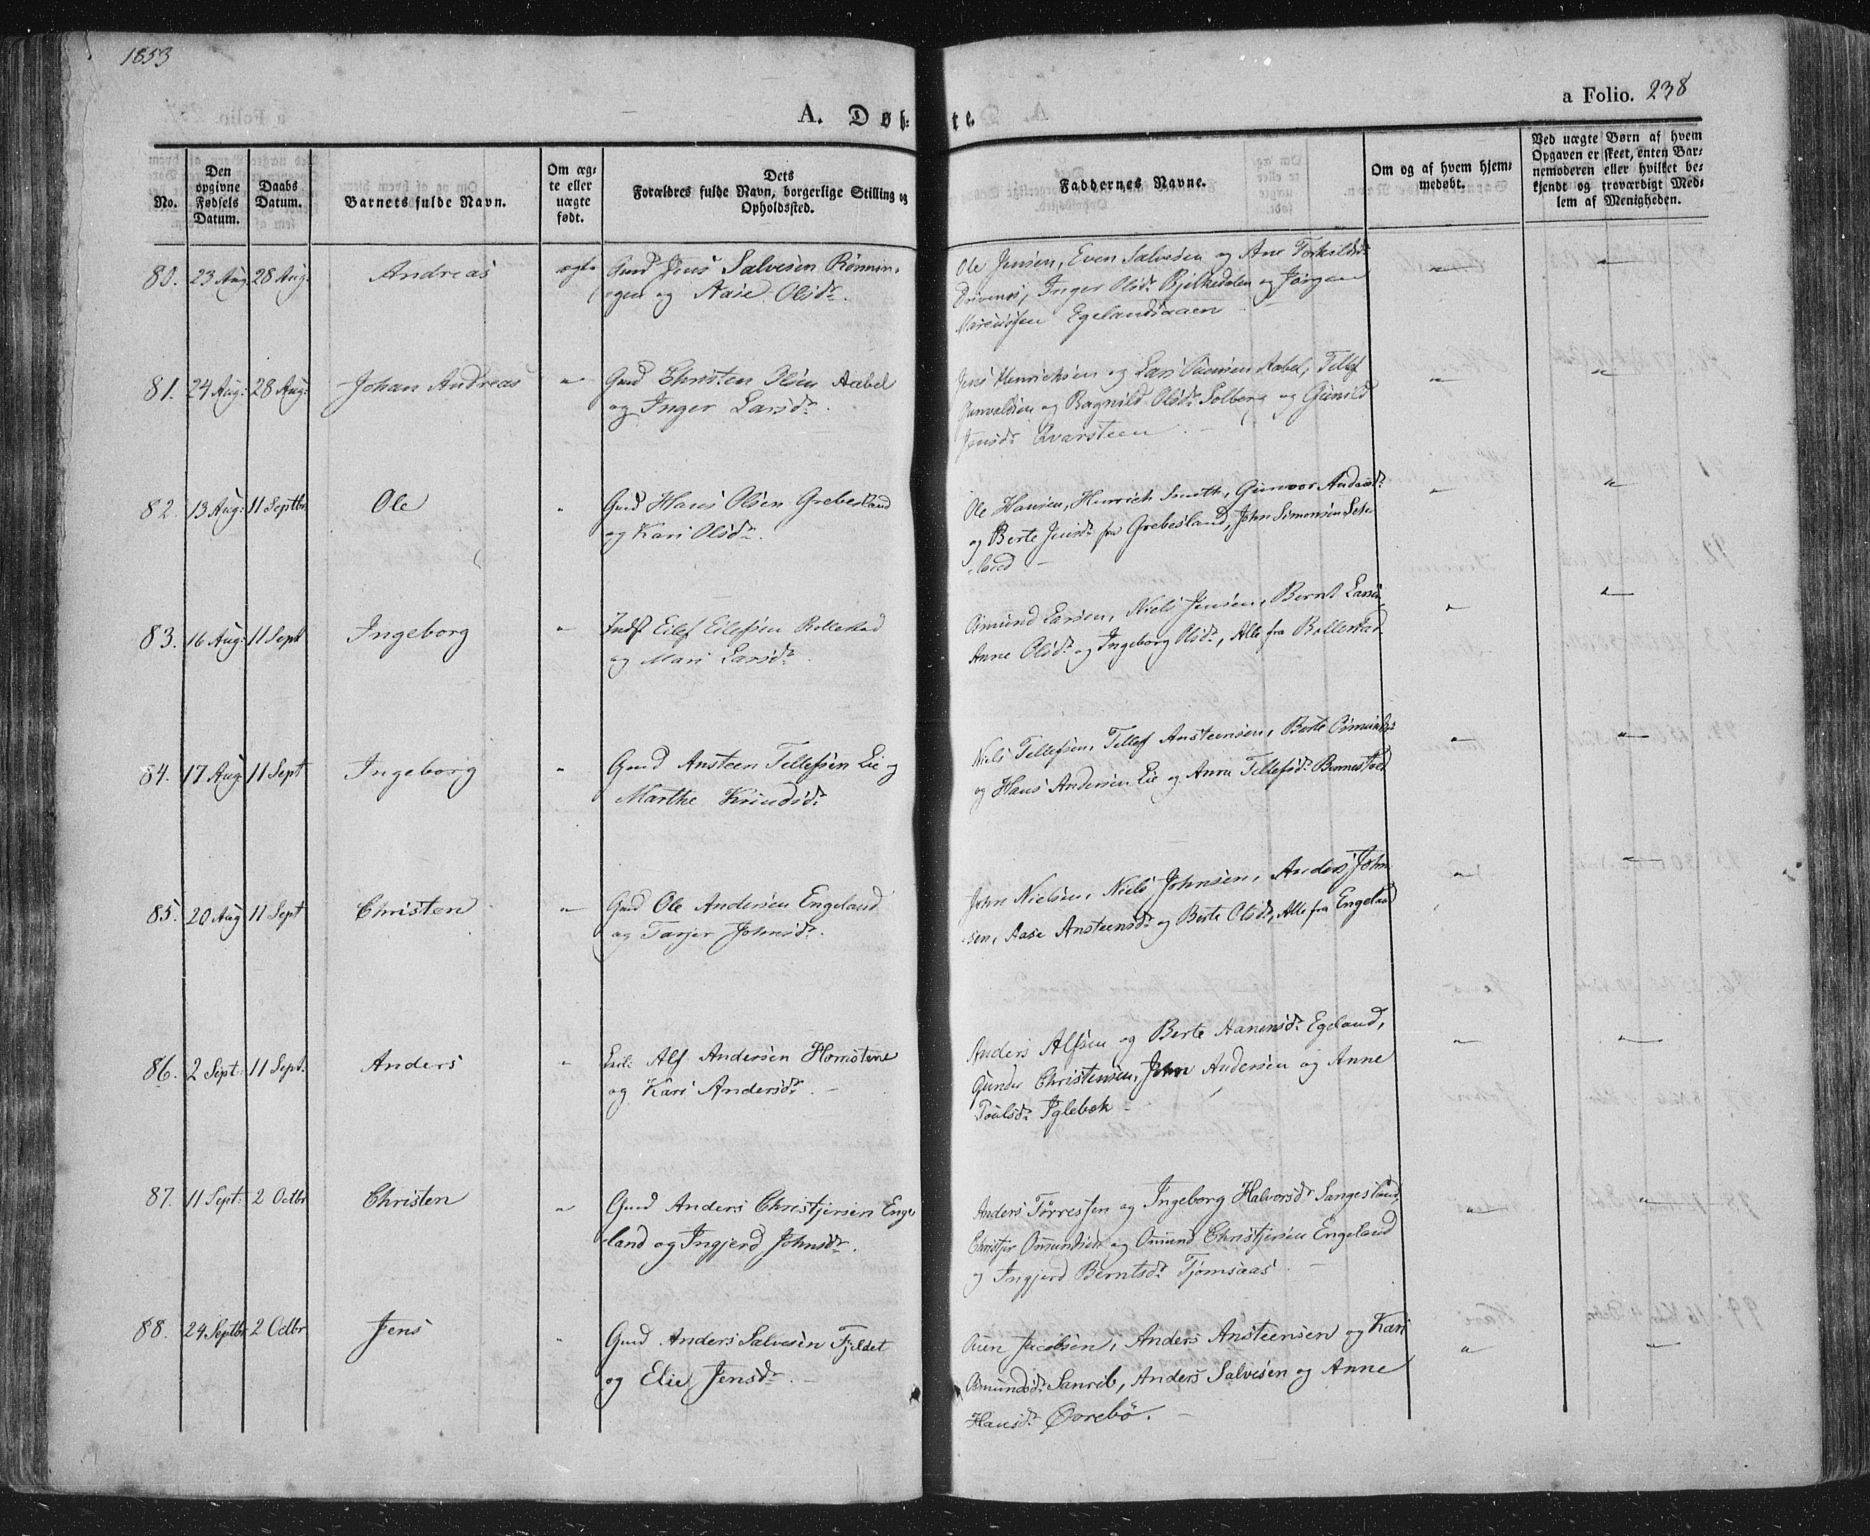 1853
a Folio. 238
A. Døbte.
No.
Den opgivne Fødsels Datum.
Daabs Datum.
Barnets fulde Navn.
Om ægte eller uægte født.
Dets Forældres fulde Navn, borgerlige Stilling og Opholdssted.
Faddernes Navne.
Om og af hvem hjemmedøbt.
Ved uægte Børn af hvem Opgaven er skeet, enten Barnemoderen eller hvilket bekjendt og troværdigt Medlem af Menigheden.
80. 23 Aug 28 Aug. Andreas ægte Gmd Jens Salvesen Rönnin-
gen og Aase Olsdr.
Ole Jensen, Even Salvesen og Ane Torkildsdr
Drivenes, Inger Olsdr Bjelkedalen og Jörgen
Egelandsaaen
81. 24 Aug: 28 Aug: Johan Andreas " Gmd Christen Olsen Aabel
og Inger Larsdr.
Jens Henriksen og Lars Aabel, Tellef
Gunvaldsen og Ragnild Olsdr Solberg og Gunild
Jensdr Qvarsteen
82. 13 Aug: 11 Septbr Ole " Gmd Hans Olsen Grebesland
og Kari Olsdr.
Ole Hansen, Henrich Smith, Gunvor Andersdr
og Berte Jensdr fra Grebesland, John Simonsen
83. 16 Aug: 11 Sept Ingeborg " Indst Eilef Eilefsen Bollestad
og Mari Larsdr.
Omund Larsen, Niels Jensen, Bernt Larsen,
Anne Olsdr og Ingeborg Olsdr, Alle fra Bollestad
84. 17 Aug: 11 Sept Ingeborg " Gmd Ansteen Tellefsen Lie og
Marthe Knudsdr
Niels Tellefsen, Tellef Ansteensen, Berte
og Hans Andersen Lie og Anne Tellefsdr Bennestvedt
85. 20 Aug 11 Sept Christen " Gmd Ole Andersen Engeland
og Tarjer Johnsdr.
John Nielsen, Niels Johnsen, Anders John-
sen, Aase Ansteensdr og Berte Olsdr, Alle fra Engeland
86. 2 Sept: 11 Sept. Anders " Alf Andersen Homstene
og Kari Andersdr.
Anders Alfsen og Berte Aanensdr Egeland,
Gunder Christensen, John Andersen og Anne
Poulsdr Iglebæk
87. 11 Sept: 2 Octbr Christen " Gmd Anders Christjersen Enge
land og Ingjerd Johnsdr.
Anders Torressen og Ingeborg Halvorsdr Sangesland,
Christjer Omundsen og Omund Christjersen Engeland
og Ingjerd Berntsdr Tjomsaas
88. 24 Septbr 2 Octbr Jens " Gmd Anders Salvesen Fjeldet
og Elie Jensdr.
Jacobsen, Anders Ansteensen og Kari
Omundsdr, Anders Salvesen og Anne
Hansdr Øvrebö.